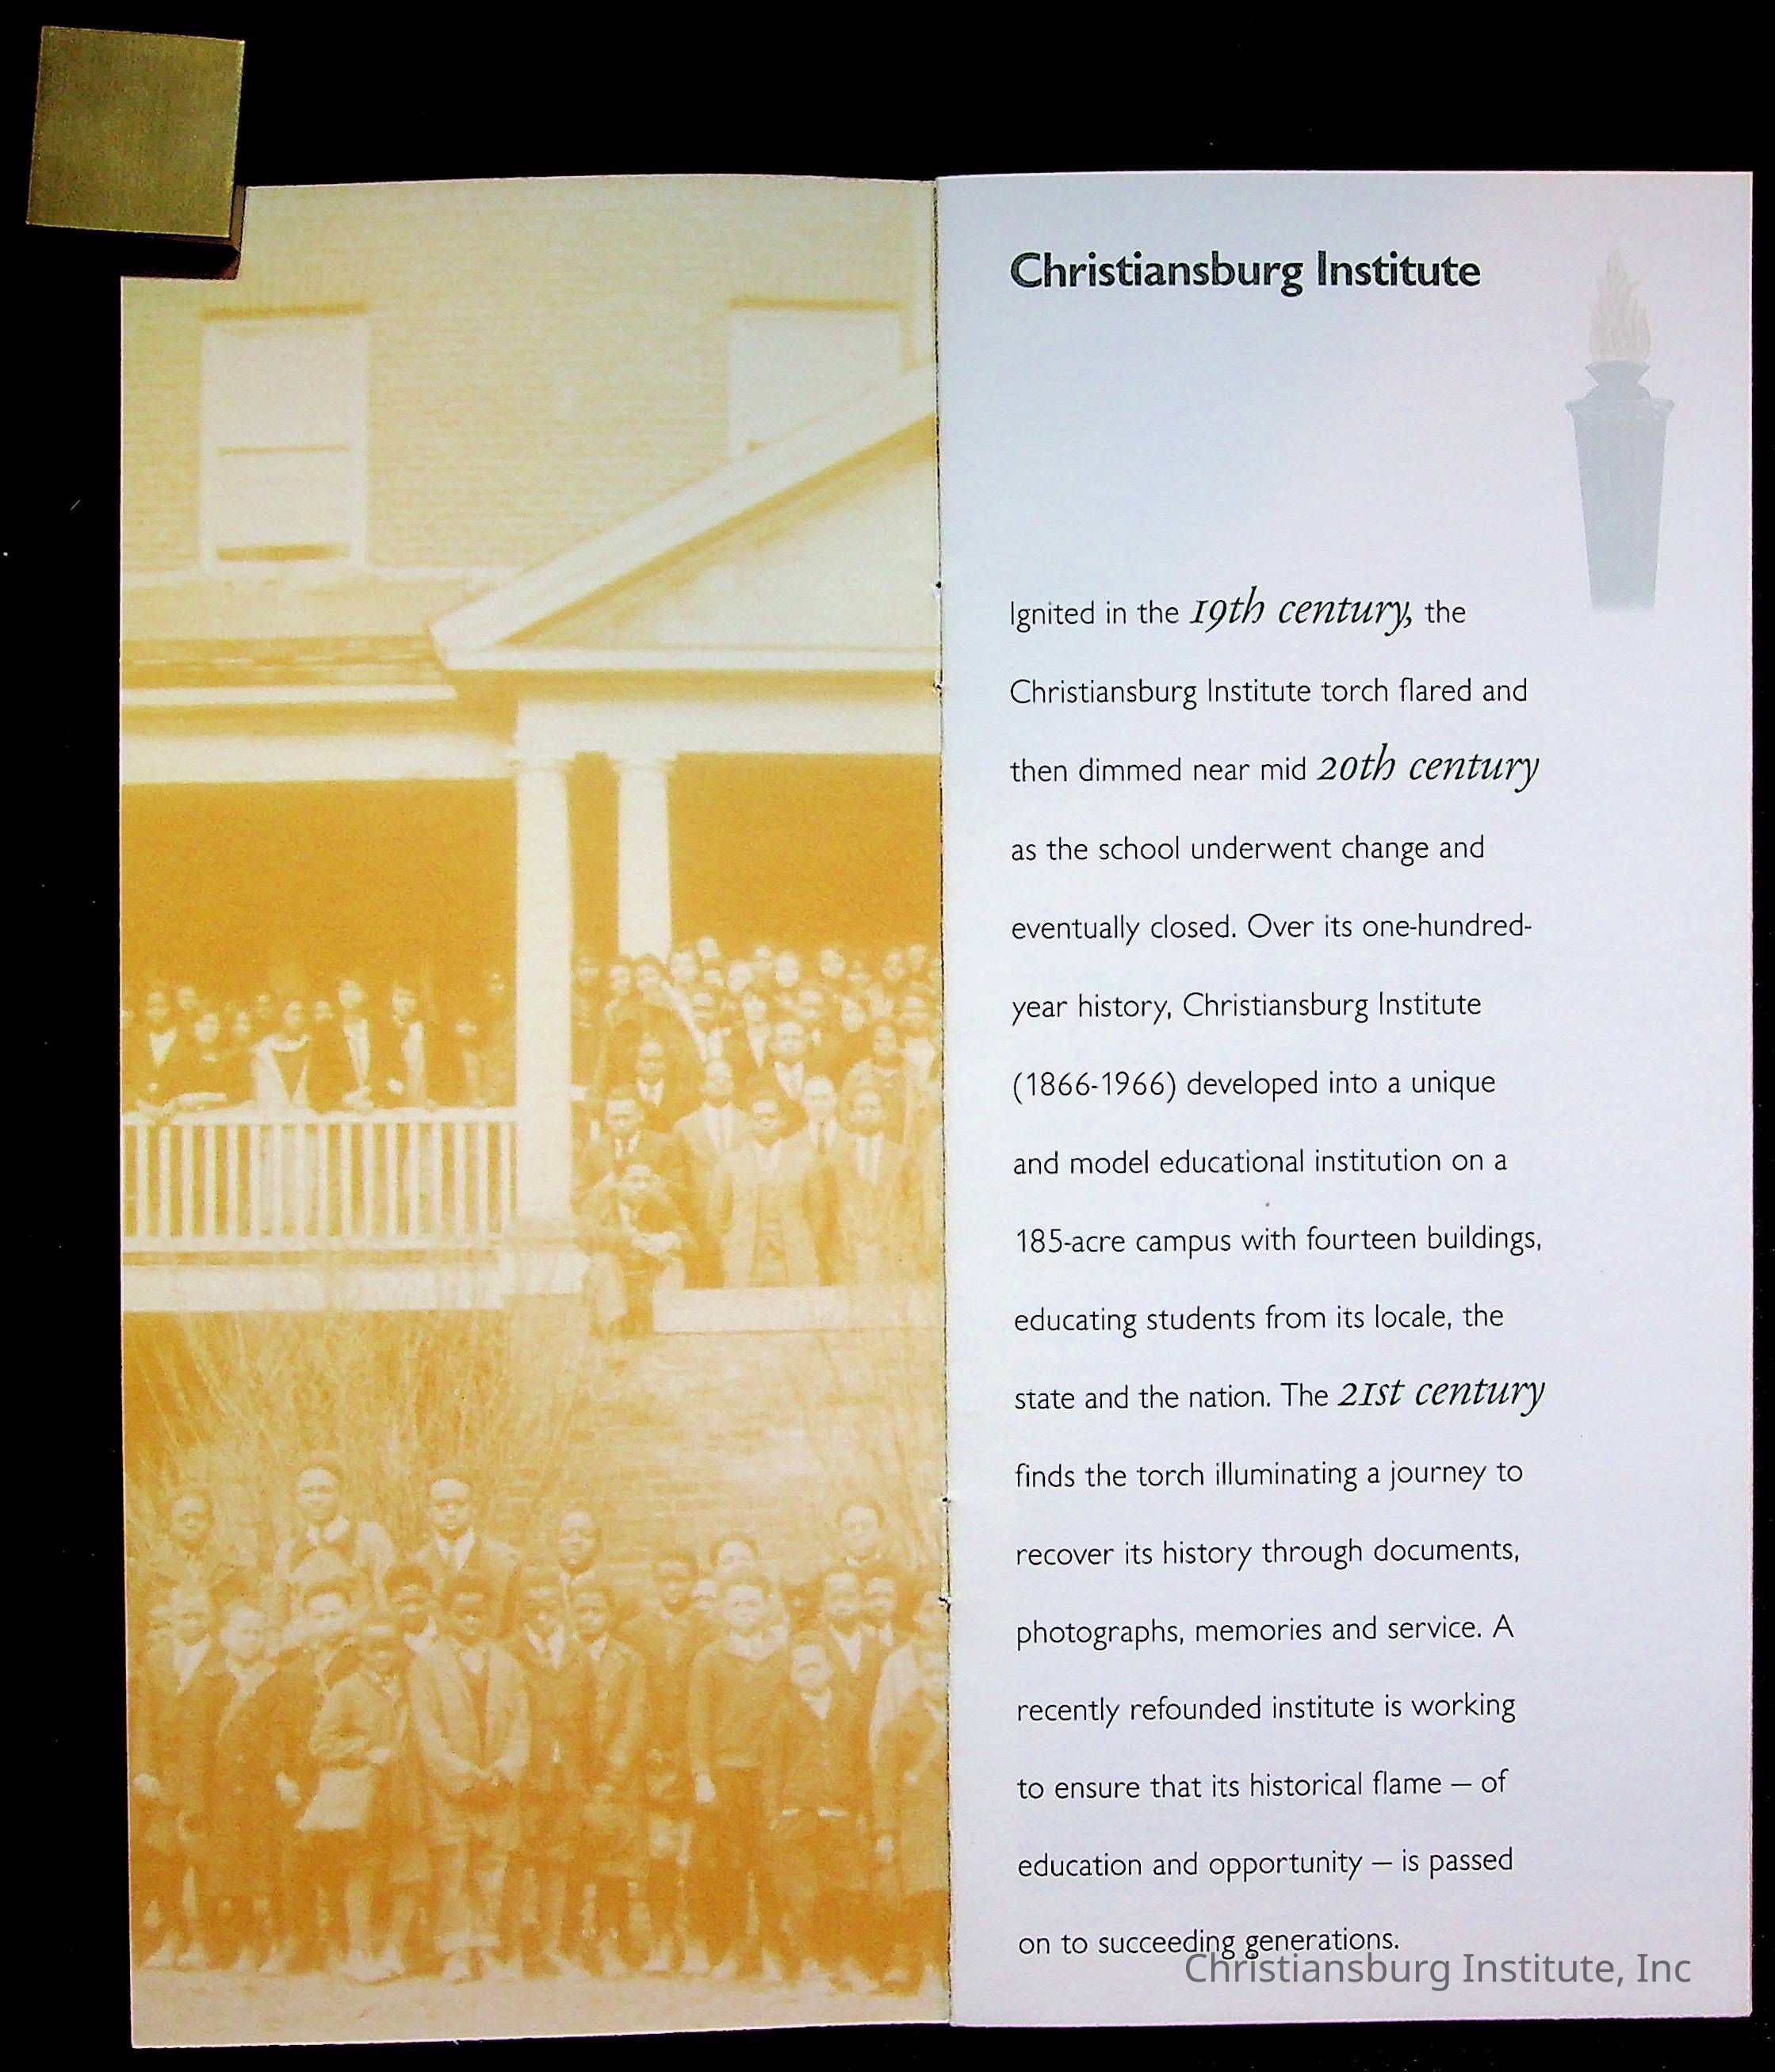 Christiansburg Institute
Ignited in the 19th century, the
Christiansburg Institute torch flared and
then dimmed near mid 20th century
as the school underwent change and
eventually closed. Over its one-hundred-
year history, Christiansburg Institute
(1866-1966) developed into a unique
and model educational institution on a
185-acre campus with fourteen buildings,
educating students from its locale, the
state and the nation. The 21st century
finds the torch illuminating a journey to
recover its history through documents,
photographs, memories and service. A
recently refounded institute is working
to ensure that its historical flame – of
education and opportunity – is passed
on to succeeding generations.
Christiansburg Institute, Inc